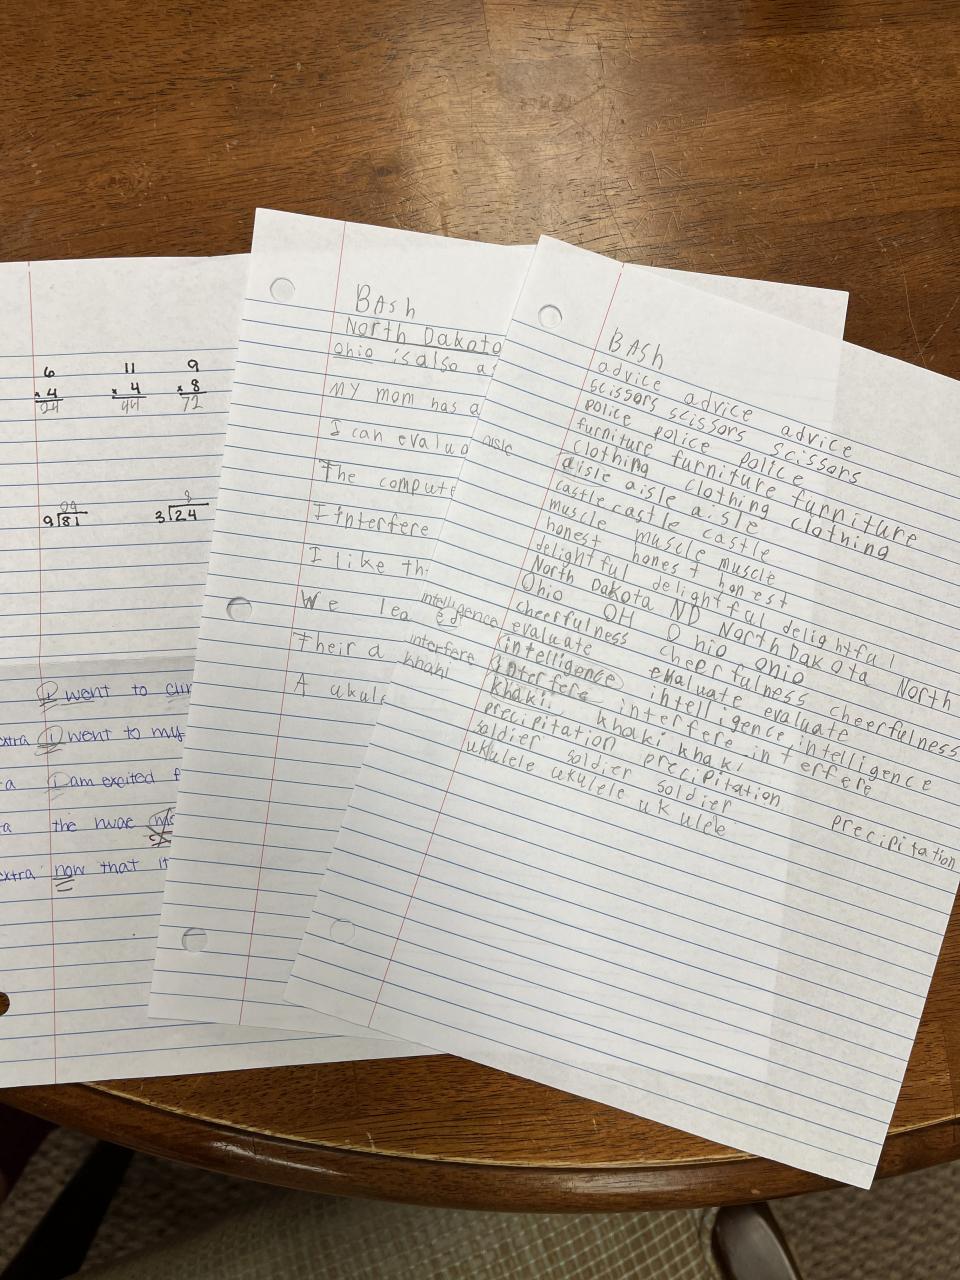 6 11 9
× 4 × 4 × 8
24 44 72
09 8
9 81 3 24
I went to
extra I went to my
a I am excited f
a the
extra now that it
BAsh
North Dakota
Ohio is also a
MY mom has a
I can evalua
The compute
I interfere
I like th
We lea
Their a
A ukule
BAsh
advice advice advice
scissors scissors scissors
police police police
furniture furniture furniture
clothing clothing clothing
aisle aisle aisle aisle
castle castle castle
muscle muscle muscle
honest honest honest
delightful delightful delightful
North Dakota ND North Dakota North
Ohio OH Ohio Ohio
cheerfulness cheerfulness cheerfulness
evaluate evaluate evaluate
intelligence intelligence intelligence intelligence
interfere interfere interfere interffere
khaki khaki khaki khaki
precipitation precipitation precipitation
soldier soldier soldier
ukulele ukulele ukulele